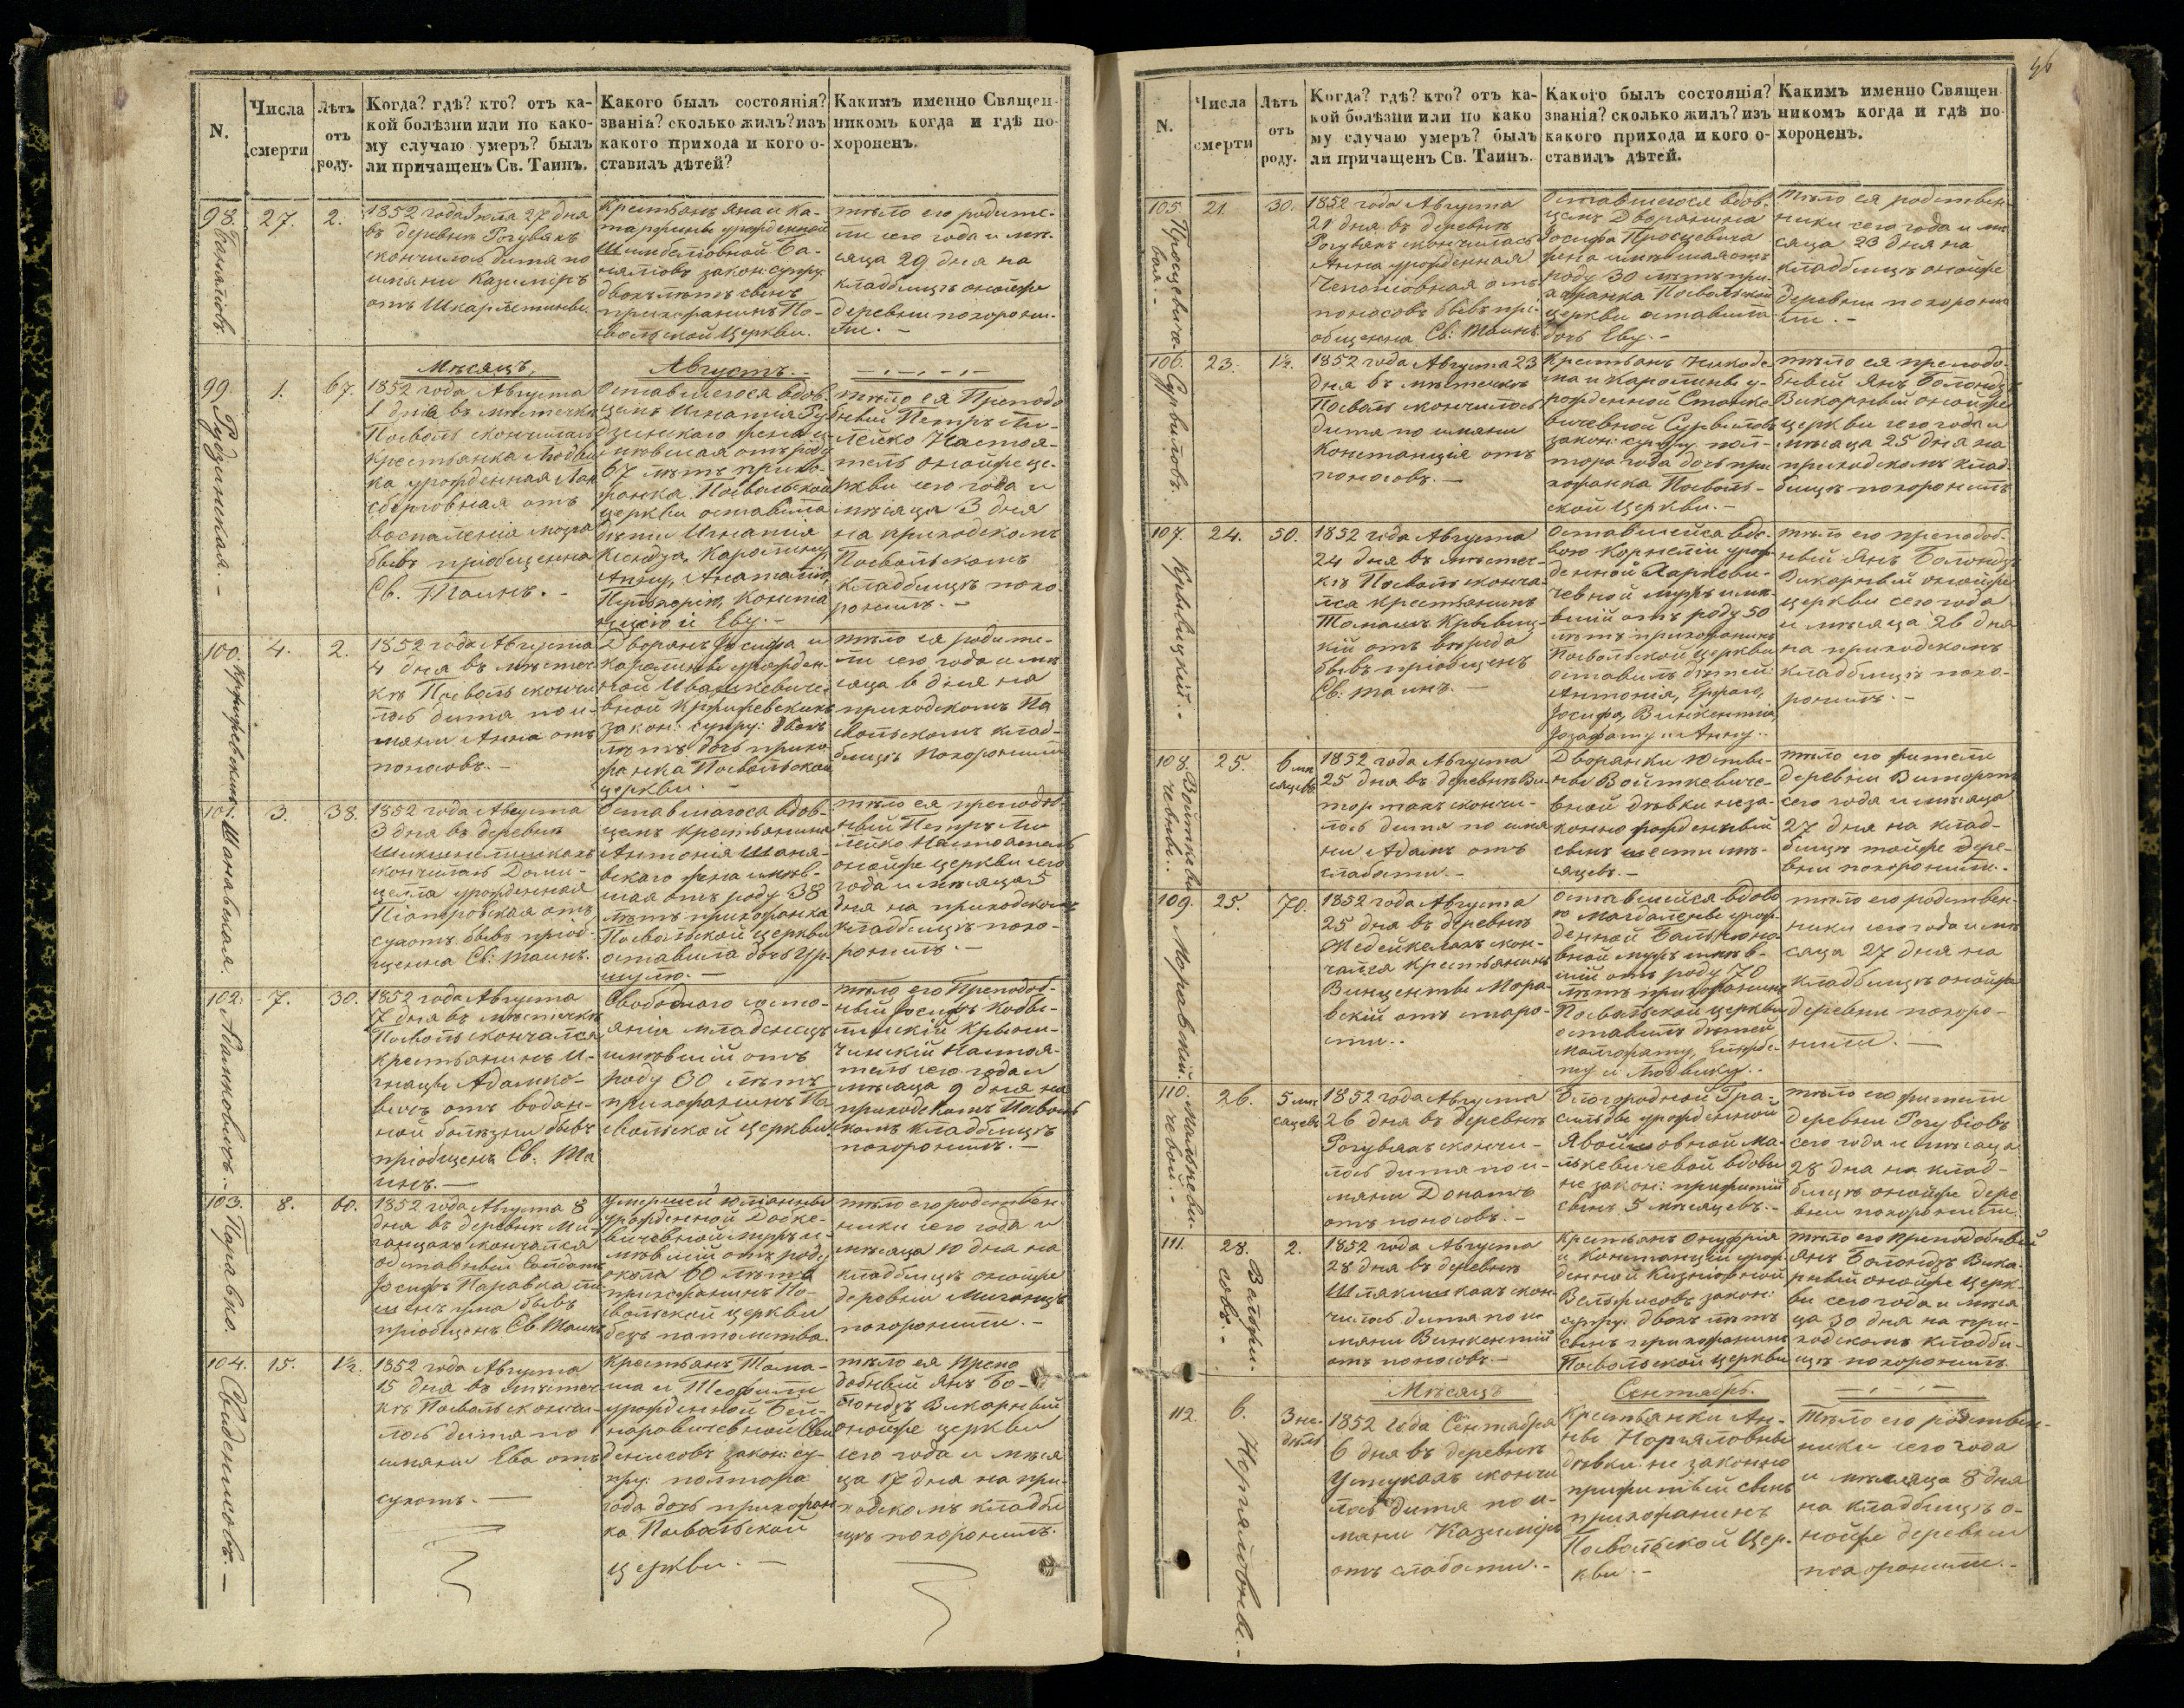 N.
Числа
смерти
Лѣтъ
отъ
роду.
Когда? гдѣ? кто? отъ ка-
кой болѣзни или по како-
му случаю умеръ? былъ
ли причащенъ Св. Таинъ.
Какого былъ состоянія?
званія? сколько жилъ? изъ
какого прихода и кого о-
ставилъ дѣтей?
Какимъ именно Священ-
никомъ когда и гдѣ по-
хороненъ.
98.
27.
2.
1852 года Іюля 27 дня
въ деревнѣ Рогувкъ
скончилось дитя по
имяни Казимиръ
отъ Шкарлетины
Крестьянъ Яна и Ка-
тарины урожденной
закон: супру:
двохлѣтъ сынъ
прихожанинъ По-
вольской Церкви.
тѣло его родите-
ли сего года и мѣ-
сяца 29 дня на
кладбищѣ онойже
деревни похорони-
ли. -
Мѣсяцъ,
Августъ. -
99. Рудзинская. -
1.
67.
1852 года Августа
1 дня въ мѣстечкѣ
Поволь скончилась
Крестьянка Людви
ка урожденная
отъ
воспаленія мозга
бывъ пріобщенна
Св. Таинъ. -
Оставшегося вдов-
цемъ Игнатія Ру-
дзинскаго жена и-
мѣвшая отъ роду
67 лѣтъ прихо-
жанка Повольской
церкви оставила
дѣти Игнатія
Ксендза, Каролину,
Анну,
Конста
нцію и Еву. -
тѣло ея Преподо
бный Петръ Ми-
лейко Настоя-
тель онойже це-
ркви сего года и
мѣсяца 3 дня
на приходскомъ
Повольскомъ
кладбищѣ похо-
ронилъ. -
100.
4.
2.
1852 года Августа
4 дня въ мѣстеч
кѣ Поволь скончи
лось дитя по и-
мяни Анна отъ
поносовъ. -
Дворянъ Іосифа и
Каролины урожден-
ной Ивашкевиче-
вной
закон: супру: двохъ
лѣтъ дочь прихо
жанка Повольской
церкви. -
тѣло ея родите-
ли сего года и мѣ
сяца 6 дня на
приходскомъ По
вольскомъ клад-
бищѣ похоронили
101. Шанявская.
3.
38.
1852 года Августа
3 дня въ деревнѣ
скончилась Доми-
целла урожденная
Піотровская отъ
сухотъ бывъ пріоб-
щенна Св: Таинъ.
Оставшагося вдов-
цемъ крестьянина
Антонія Шаня-
вскаго жена имѣв-
шая отъ роду 38
лѣтъ прихожанка
Повольской церкви
оставила дочь Ур-
шулю. -
тѣло ея преподо-
бный Петръ Ми
лейко Настоятель
онойже церкви сего
года и мѣсяца 5
дня на приходскомъ
кладбищѣ похо-
ронилъ. -
102. Адамковичъ. -
7.
30.
1852 года Августа
7 дня въ мѣстечкѣ
Поволь скончался
крестьянинъ И-
гнацы Адамко-
вичъ отъ водян-
ной болѣзни бывъ
пріобщенъ Св. Та
инъ. -
Свободнаго состо-
янія младенецъ
имѣвшій отъ
роду 30 лѣтъ
прихожанинъ По
вольской церкви.
тѣло его Преподоб-
ный Іосифъ Кобы-
линскій
Настоя-
тель сего года и
мѣсяца 9 дня на
приходскомъ Поволь
скомъ кладбищѣ
похоронилъ. -
103.
8.
60.
1852 года Августа 8
дня въ деревнѣ Ми-
ганцахъ скончался
отставный Солдатъ
Іосифъ
бывъ
пріобщенъ Св. Таинъ
Умершей Юліанны
урожденной
вичевной мужъ и-
мѣвшій отъ роду
около 60 лѣтъ
прихожанинъ По-
вольской церкви
безъ потомства.
тѣло его родствен
ники сего года и
мѣсяца 10 дня на
кладбищѣ онойже
деревни Миганцъ
похоронили. -
104.
15.
1½.
1852 года Августа
15 дня въ мѣстеч
кѣ Поволь скончи-
лось дитя по
имяни Ева отъ
сухотъ. -
Крестьянъ Тома-
ша и Теофили
урожденной Бей-
наровичевной
закон: су-
пру: полтора
года дочь прихожан
ка Повольской
церкви. -
тѣло ея Препо
добный Янъ Бо-
лондзъ Викарный
онойже церкви
сего года и мѣся
ца 17 дня на при-
ходскомъ кладби
щѣ похоронилъ.
N.
Числа
смерти
Лѣтъ
отъ
роду.
Когда? гдѣ? кто? отъ ка-
кой болѣзни или по како
му случаю умеръ? былъ
ли причащенъ Св. Таинъ.
Какого былъ состоянія?
званія? сколько жилъ? изъ
какого прихода и кого о-
ставилъ дѣтей.
Какимъ именно Священ
никомъ когда и гдѣ по-
хороненъ.
105. Просцевиче-
вая. -
21.
30.
1852 года Августа
21 дня въ деревнѣ
Рогувкъ скончилась
Анна урожденная
отъ
поносовъ бывъ прі-
общенна Св: Таинъ
Оставшегося вдов-
цемъ Дворянина
Іосифа Просцевича
жена имѣвшая отъ
роду 30 лѣтъ при-
хожанка Повольской
церкви оставила
дочь Еву. -
Тѣло ея родствен-
ники сего года и мѣ
сяца 23 дня на
кладбищѣ онойже
деревни похорони
ли. -
106. Сурвиловъ.
23.
1½.
1852 года Августа 23
дня въ мѣстечкѣ
Поволь скончилось
дитя по имяни
Констанція отъ
поносовъ. -
Крестьянъ Никоде-
ма и Каролины у-
рожденной Станке-
вичевной Сурвиловъ
закон: супру: пол-
тора года дочь при
хожанка Поволь-
ской Церкви. -
тѣло ея преподо-
бный Янъ Болондзъ
Викарный онойже
церкви сего года и
мѣсяца 25 дня на
приходскомъ клад-
бищѣ похоронилъ
107. Крывицкій. -
24.
50.
1852 года Августа
24 дня въ мѣстеч-
кѣ Поволь сконча-
лся крестьянинъ
Томашъ Крывиц-
кій отъ
бывъ пріобщенъ
Св: таинъ. -
Оставшейся вдо-
вою Корнеліи урож-
денной
чевной мужъ имѣ-
вшій отъ роду 50
лѣтъ прихожанинъ
Повольской церкви
оставилъ дѣтей:
Антонія,
Іосифа, Винкентія,
Іозафату и Анну. -
тѣло его преподоб-
ный Янъ Болондзъ
Викарный онойже
церкви сего года
и мѣсяца 26 дня
на приходскомъ
кладбищѣ похо-
ронилъ. -
108. Войткеви-
чевны. -
25.
6 мѣ
сяцевъ
1852 года Августа
25 дня въ деревнѣ Ви-
скончи-
лось дитя по имя
ни Адамъ отъ
слабости. -
Дворянки Юсти-
ны Войткевиче-
вной дѣвки неза-
конно рожденный
сынъ шести мѣ-
сяцевъ. -
тѣло его жители
деревни
сего года и мѣсяца
27 дня на клад-
бищѣ тойже дере-
вни похоронили. -
109. Моравскій.
25.
70.
1852 года Августа
25 дня въ деревнѣ
Медейкеляхъ скон-
чался крестьянинъ
Винценты Мора-
вскій отъ старо-
сти. -
Оставшейся вдово
ю Магдалены урож-
денной
вной мужъ имѣв-
шій отъ роду 70
лѣтъ прихожанинъ
Повольской церкви
оставилъ дѣтей
и Людвику. -
тѣло его родствен-
ники сего года и мѣ
сяца 27 дня на
кладбищѣ онойже
деревни похоро-
нили. -
110. Малькеви-
чевой. -
26.
5 мѣ
сяцевъ
1852 года Августа
26 дня въ деревнѣ
Рогувкахъ скончи-
лось дитя по и-
мяни Донатъ
отъ поносовъ. -
Благородной
урожденной
Ма-
лькевичевой вдовы
не закон: прижитій
сынъ 5 мѣсяцевъ. -
тѣло его жители
деревни
сего года и мѣсяца
28 дня на клад-
бищѣ онойже дере
вни похоронили.
111.
28.
2.
1852 года Августа
28 дня въ деревнѣ
скон
чилось дитя по и
мяни Винкентій
отъ поносовъ. -
Крестьянъ Онуфрія
и Констанціи урож-
денной
закон:
супру: двохъ лѣтъ
сынъ прихожанинъ
Повольской церкви
тѣло его преподобный
Янъ Болондзъ Вика-
рный онойже церк-
ви сего года и мѣся
ца 30 дня на при-
ходскомъ кладби-
щѣ похоронилъ
Мѣсяцъ
Сентябрь.
112.
6.
3 не-
дѣль
1852 года Сентября
6 дня въ деревнѣ
скончи
лось дитя по и-
мяни Казимиръ
отъ слабости. -
Крестьянки Ан-
ны
дѣвки не законно
прижитый сынъ
прихожанинъ
Повольской Цер-
кви. -
Тѣло его родствен-
ники сего года
и мѣсяца 8 дня
на кладбищѣ о-
нойже деревни
похоронили. -